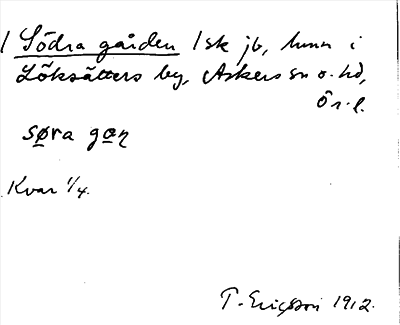 / Södra gården / sk jb, hmn i
Löksätters by, Askers sn o. hd,
Ör. l.
søra gɑn
Kvar 1/4.
T. Ericsson 1912.